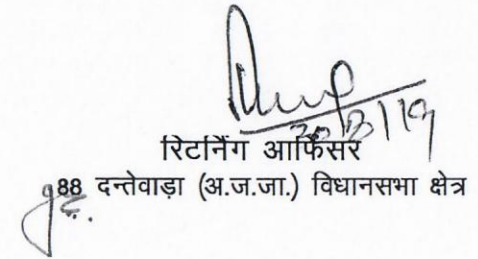 रिटर्निंग आफिसर
88 दन्तेवाड़ा (अ.ज.जा.) विधानसभा क्षेत्र